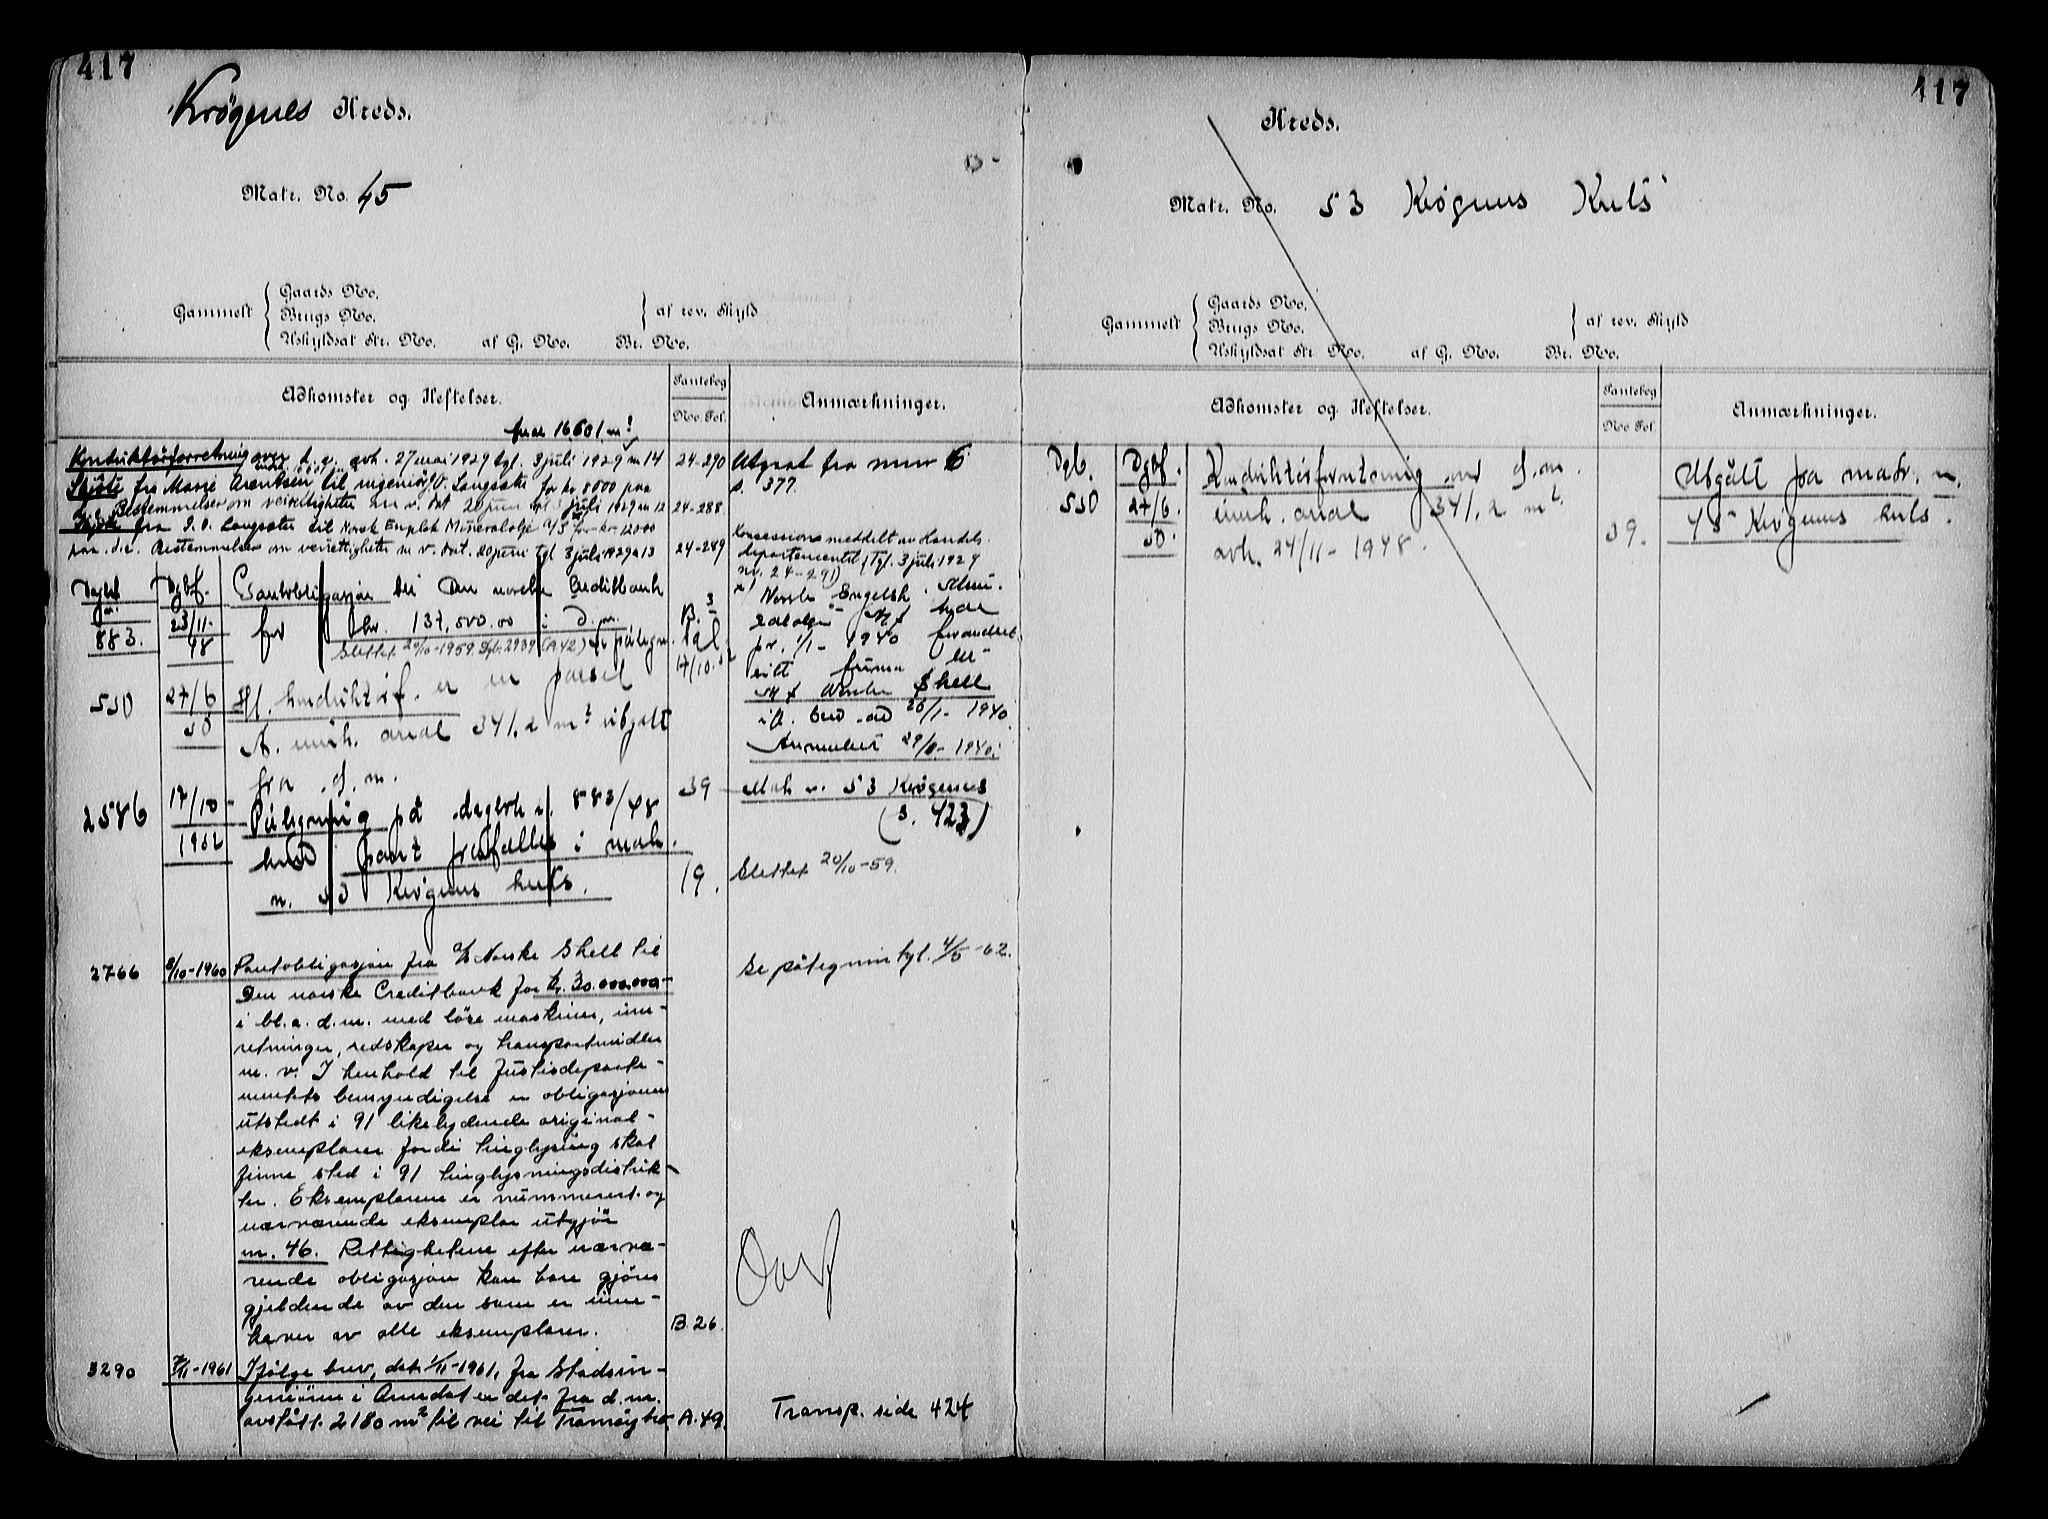 417
Krøgenes Kreds.
Matr. No. 45
Gammelt
Gaards No.
Brugs No.
Uskyldsat Str. No. af G. No. Br. No.
af rev. Skyld
Adkomster og Heftelser.
Pantebog
No. Fol.
Anmærkninger.
areal 16,601 m²
Konduktørforretning over d. e. avh. 27 mai 1929 tgl. 3 juli 1929 nr 14
24-290
Utgaat fra mnr 6
s. 377.
Skjøte fra Marie Arentsen til ingeniør J.O. Langsæte for kr 8000 paa
d.e. Bestemmelser om veirettigheter m v. dat 20 juni tgl 3 juli 1929 nr 12
24-288.
Skjøte fra J. O. Langsæte til Norsk Engelsk Mineralolje A/S for kr. 12000
paa d.e. Bestemmelser om veirettigheter m v. dat. 20 juni tgl 3 juli 1929 nr 13
24-289
Konsession meddelt av Handels
departementet (tgl. 3 juli 1929
nr. 24-291)
x) Norsk Engelsk Min-
eralolje A/S
pr. 1/1 - 1940 forandret
sitt firma til
A/S Norske Shell
ifl. brev av 26/1- 1940
Anmerket 29/1- 1940.
Dagbf nr. 883.
Dgbf. 23/11- 48
Pantobligasjon til Den norske Creditbank
for kr. 137,500.00 i d. m.
Slettet 20/10-1959. Dgb. 2939 (A 42) Se påtegn.
B. 3
tgl.
17/10.52
550
27/6 50
Ifl. konduktørf. er en parsel
A. innh. areal 341,2 m² utgått
fra d. m.
39
Matr. nr. 53 Krøgenes
(s. 423)
2586
17/10- 1952
Påtegning på dagbok nr. 883/48
hvor pant frafalles i matr.
nr. 53 Krøgenes krets.
19.
Slettet 20/10-59.
2766
8/10-1960
Pantobligasjon fra A/S Norske Shell til
Den norske Creditbank for kr. 30.000.000-
i bl.a. d.m. med løse maskiner, inn-
retninger, redskaper og transportmidler
m. v. I henhold til Justisdeparte-
mentets bemyndigelse er obligasjonen
utstedt i 91 likelydende original-
eksemplarer fordi tinglysing skal
finne sted i 91 tinglysningsdistrik-
ter. Eksemplarene er nummerert og
nærværende eksemplar utgjør
nr. 46. Rettighetene efter nærvæ-
rende obligasjon kan bare gjøres
gjeldende av den som er inne-
haver av alle eksemplarer.
B 26.
Se påtegning tgl. 4/5-62.
3290
7/11-1961
Ifølge brev, dat. 1/11-1961, fra Stadsin-
geniøren i Arendal er det fra d. m.
avstått 2180 m² til vei til Tromøybro.
A. 49.
Transp. side 424
417
Kreds.
Matr. No. 53 Krøgenes Krets
Gammelt
Gaards No.
Brugs No.
Uskyldsat Str No. af G. No. Br. No.
af rev. Skyld
Adkomster og Heftelser.
Pantebog
No Fol.
Anmærkninger.
Dgb. 550
Dgbf. 27/6. 50.
Konduktørforretning over d. m.
innh. areal 341,2 m².
avh. 24/11- 1948.
39.
Utgått fra matr. nr.
45 Krøgenes krets.